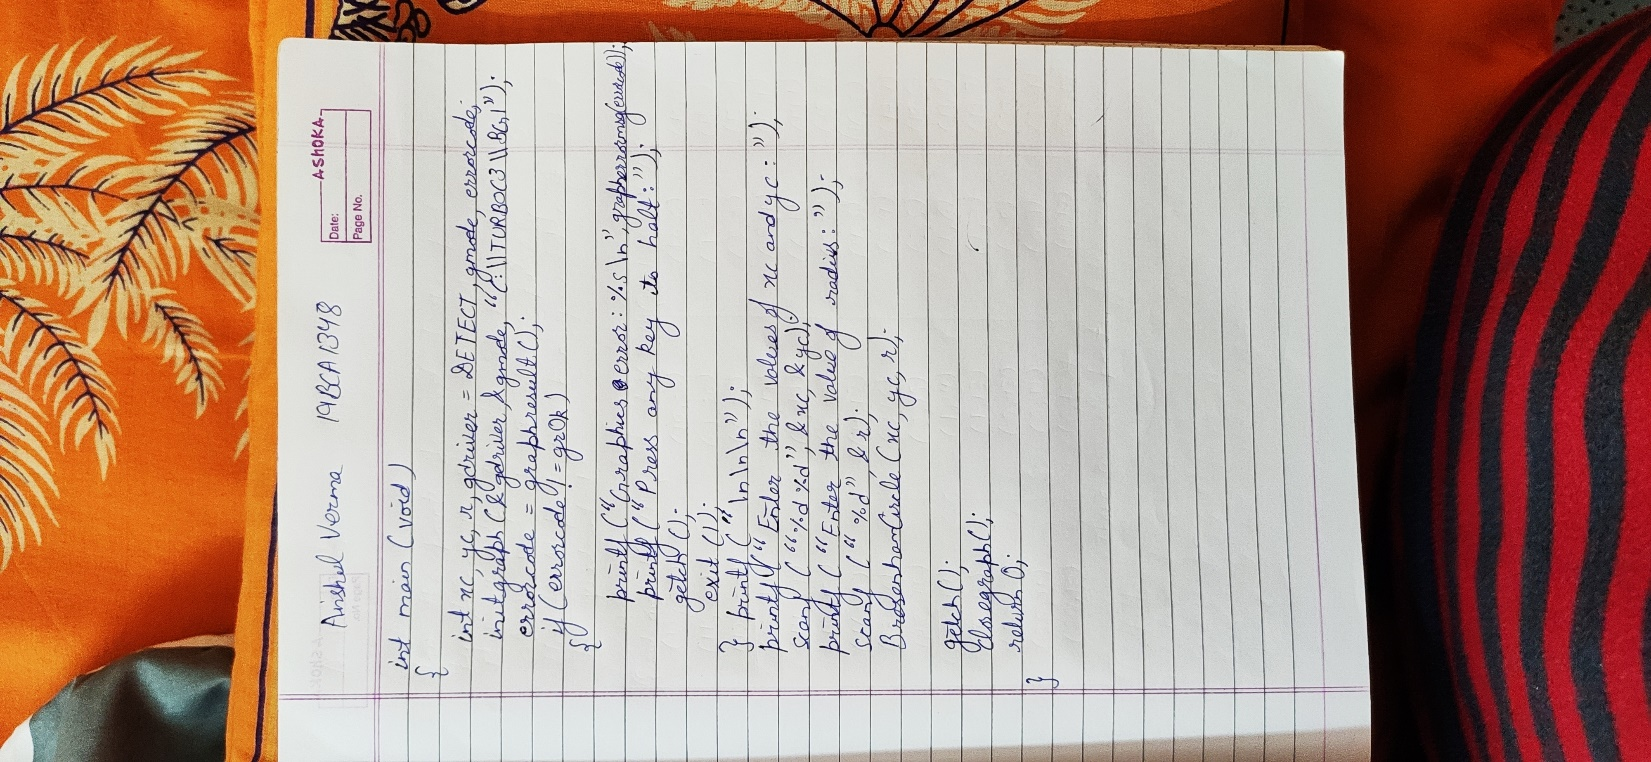 ASHOKA
Date:
Page No.
Anshul Verma 19BCA1348
int main (void)
{
int xc, yc, r, gdriver = DETECT, gmode, errorcode;
initgraph (& gdriver, & gmode, "C:\\TURBOC3\\BGI");
errorcode = graphresult ();
if (errorcode != grOk)
{
printf ("Graphics error: %s\n", grapherrormsg(errorcode));
printf ("Press any key to halt:");
getch ();
exit (1);
} printf ("\n\n\n");
printf ("Enter the values of xc and yc :");
scanf ("%d %d", & xc, & yc);
printf ("Enter the value of radius : ");
scanf ("%d", & r);
BresenhamCircle (xc, yc, r);
getch ();
closegraph();
return 0;
}